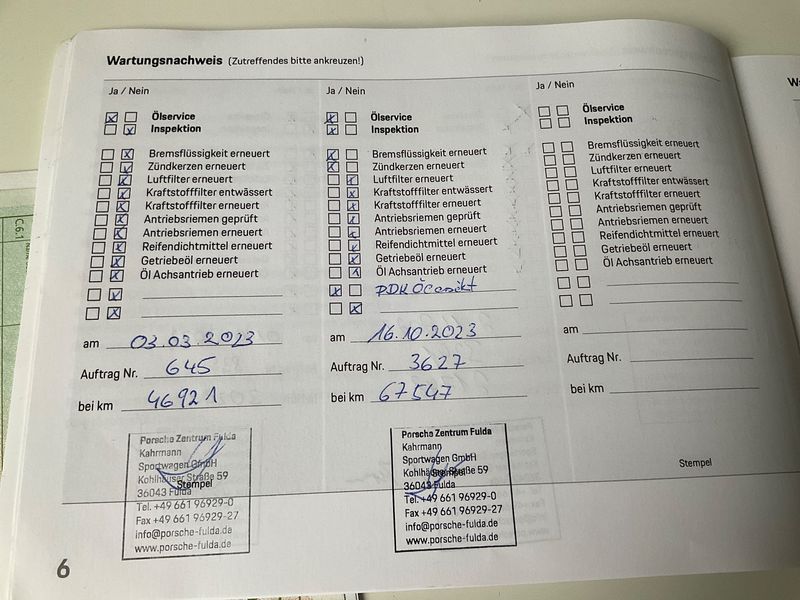 Wartungsnachweis (Zutreffendes bitte ankreuzen!)
Ja / Nein
Ölservice
Inspektion
Bremsflüssigkeit erneuert
Zündkerzen erneuert
Luftfilter erneuert
Kraftstofffilter entwässert
Kraftstofffilter erneuert
Antriebsriemen geprüft
Antriebsriemen erneuert
Reifendichtmittel erneuert
Getriebeöl erneuert
Öl Achsantrieb erneuert
am 03.03.2023
Auftrag Nr. 645
bei km 46921
Porsche Zentrum Fulda
Kahrmann
Sportwagen GmbH
Kohlhäuser Straße 59
Stempel
36043 Fulda
Tel. +49 661 96929-0
Fax +49 661 96929-27
info@porsche-fulda.de
www.porsche-fulda.de
Ja / Nein
Ölservice
Inspektion
Bremsflüssigkeit erneuert
Zündkerzen erneuert
Luftfilter erneuert
Kraftstofffilter entwässert
Kraftstofffilter erneuert
Antriebsriemen geprüft
Antriebsriemen erneuert
Reifendichtmittel erneuert
Getriebeöl erneuert
Öl Achsantrieb erneuert
PDK
am 16.10.2023
Auftrag Nr. 3627
bei km 67547
Porsche Zentrum Fulda
Kahrmann
Sportwagen GmbH
Kohlhäuser Straße 59
Stempel
36043 Fulda
Tel. +49 661 96929-0
Fax +49 661 96929-27
info@porsche-fulda.de
www.porsche-fulda.de
Ja / Nein
Ölservice
Inspektion
Bremsflüssigkeit erneuert
Zündkerzen erneuert
Luftfilter erneuert
Kraftstofffilter entwässert
Kraftstofffilter erneuert
Antriebsriemen geprüft
Antriebsriemen erneuert
Reifendichtmittel erneuert
Getriebeöl erneuert
Öl Achsantrieb erneuert
am
Auftrag Nr.
bei km
Stempel
6
C.6.1